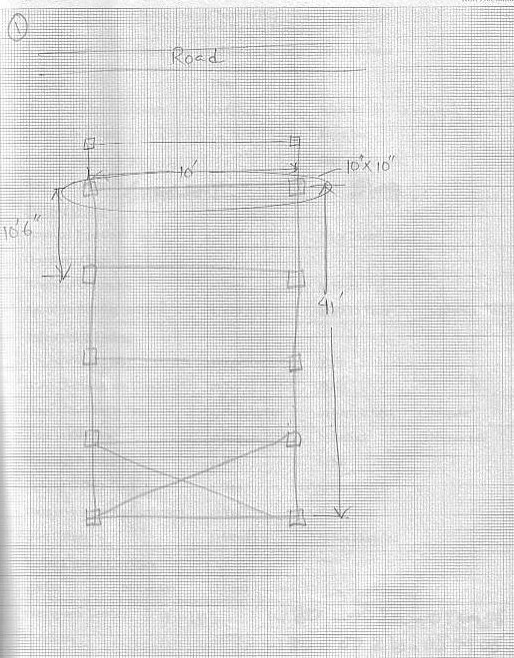 ①
Road
10'
10"x10"
10'6"
41'